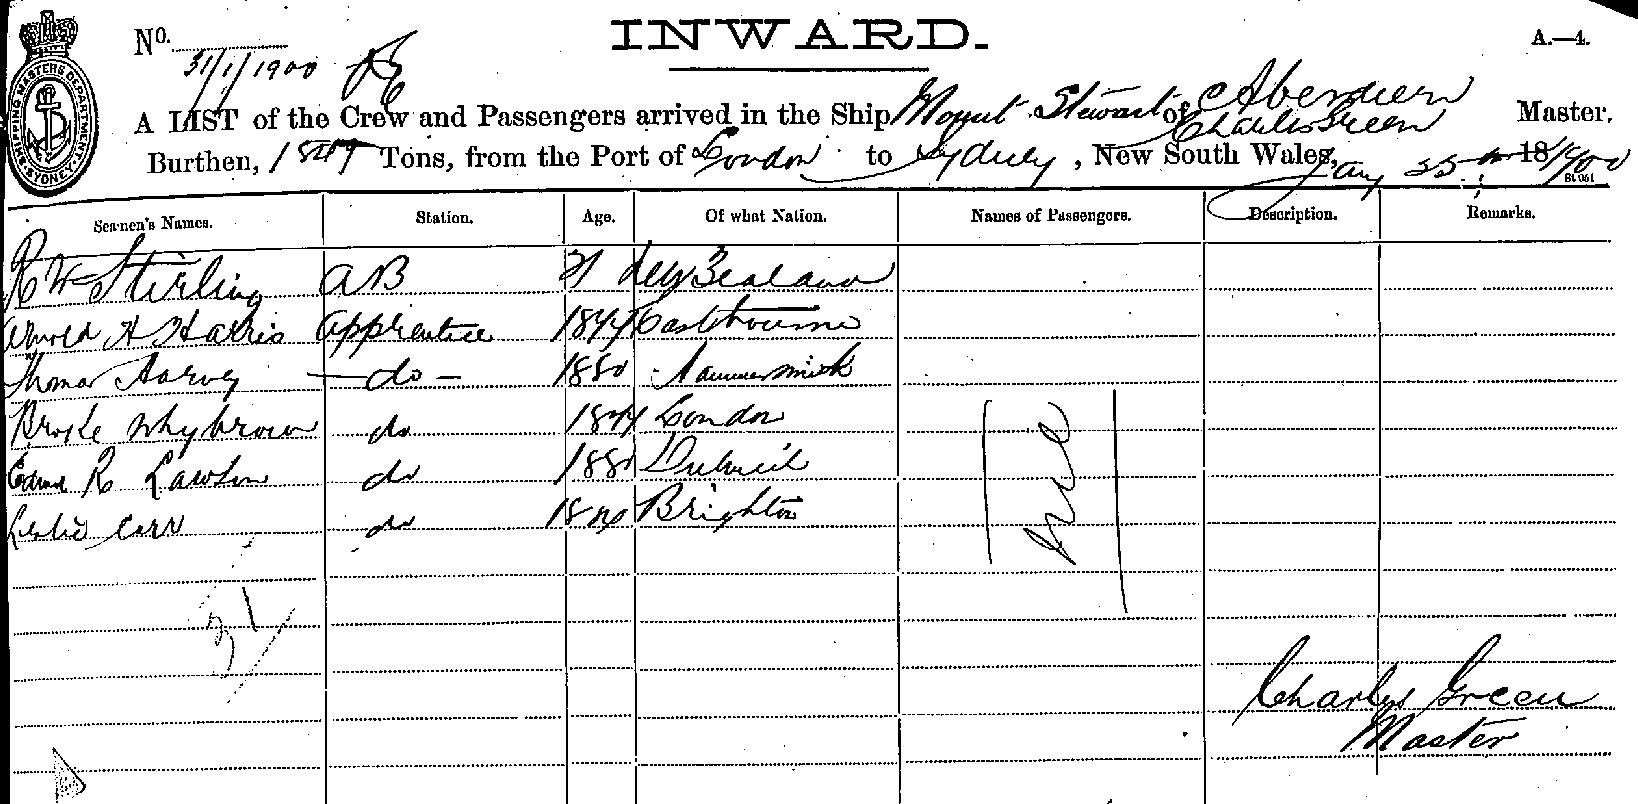 INWARD.
No. A.—4.
31/1/1900
SHIPPING MASTERS DEPARTMENT. SYDNEY.
A LIST of the Crew and Passengers arrived in the Ship Mount Stewart of Aberdeen Charles Green Master,
Burthen, Tons, from the Port of London to Sydney, New South Wales, Jany 25th 18/1900
Seamen's Names. Station. Age. Of what Nation. Names of Passengers. Description. Remarks.
R W Stirling AB 21 New Zealand
Arnold H Harris Apprentice Eastbourne
Thomas Harvey do 1880 Hammersmith
Whybrow do London
R Lawson do Dulwich
Leslie Carr do Brighton
31
Charles Green
Master